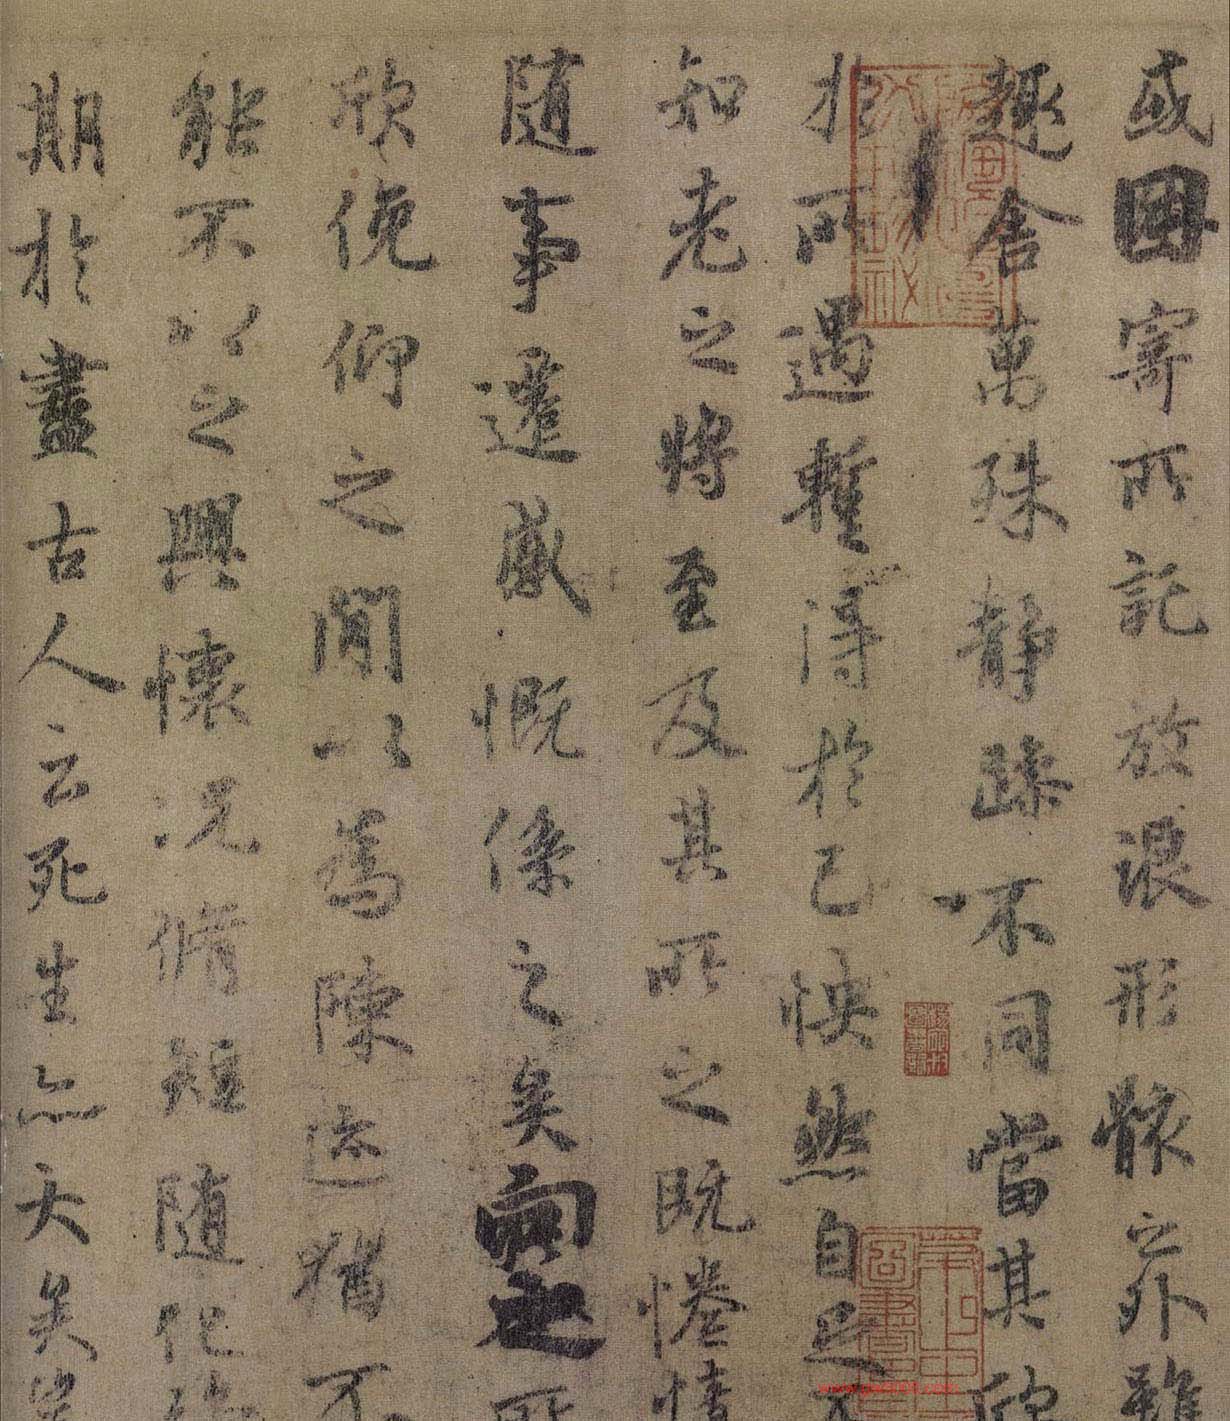 或因寄所託放浪形骸之外雖
趣舍萬殊静躁不同當其欣
於所遇暫得於己怏然自足不
知老之將至及其所之既惓情
随事遷感慨係之矣向之所
欣俛仰之閒以爲陳迹猶不
能不以之興懷况脩短随化終
期於盡古人云死生亦大矣豈